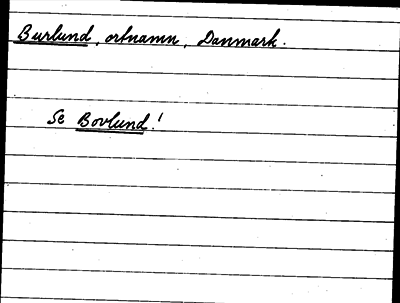 Burlund, ortnamn, Danmark.
Se Bovlund!